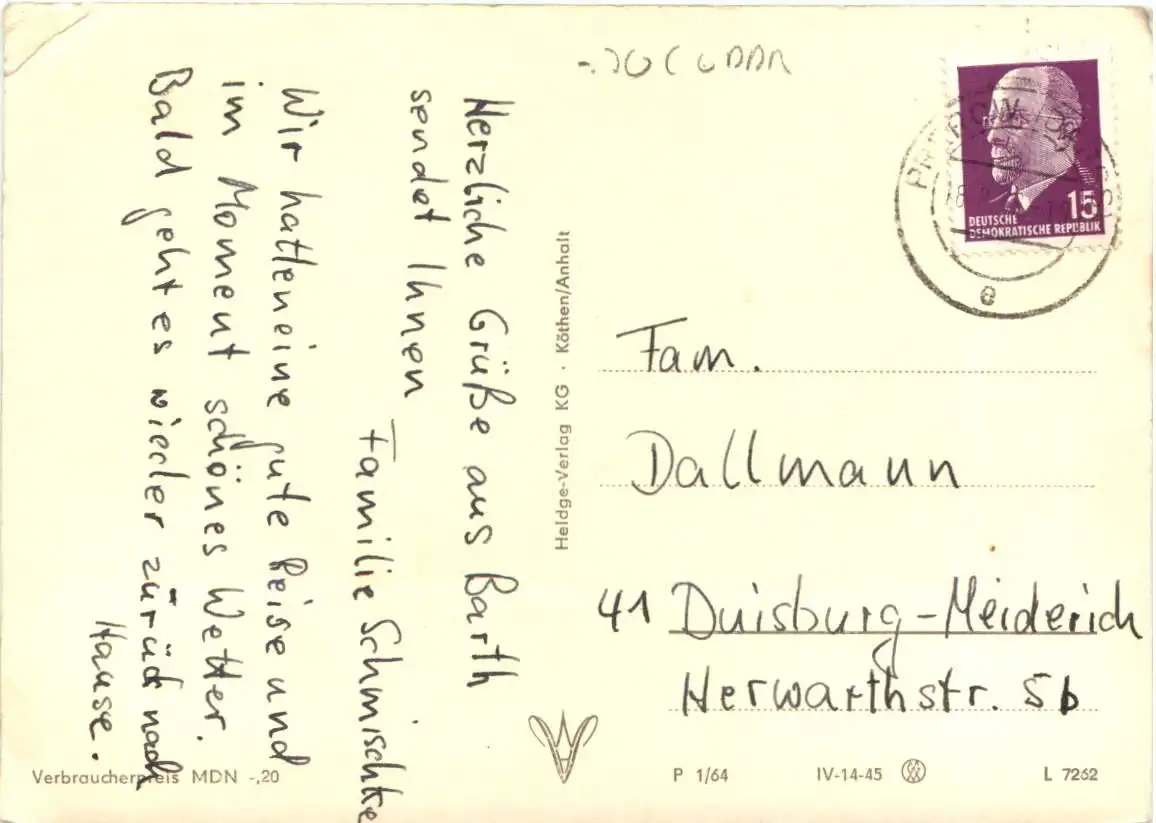 Herzliche Grüße aus Barth
sendet Ihnen
Familie Schmischke
Wir hatten eine gute Reise und
im Moment schönes Wetter.
Bald geht es wieder zurück nach
Hause.
Verbraucherpreis MDN -,20
Heldge-Verlag KG · Köthen/Anhalt
15
DEUTSCHE
DEMOKRATISCHE REPUBLIK
e
Fam.
Dallmann
41 Duisburg-Meiderich
Herwarthstr. 5b
P 1/64 IV-14-45 L 7262